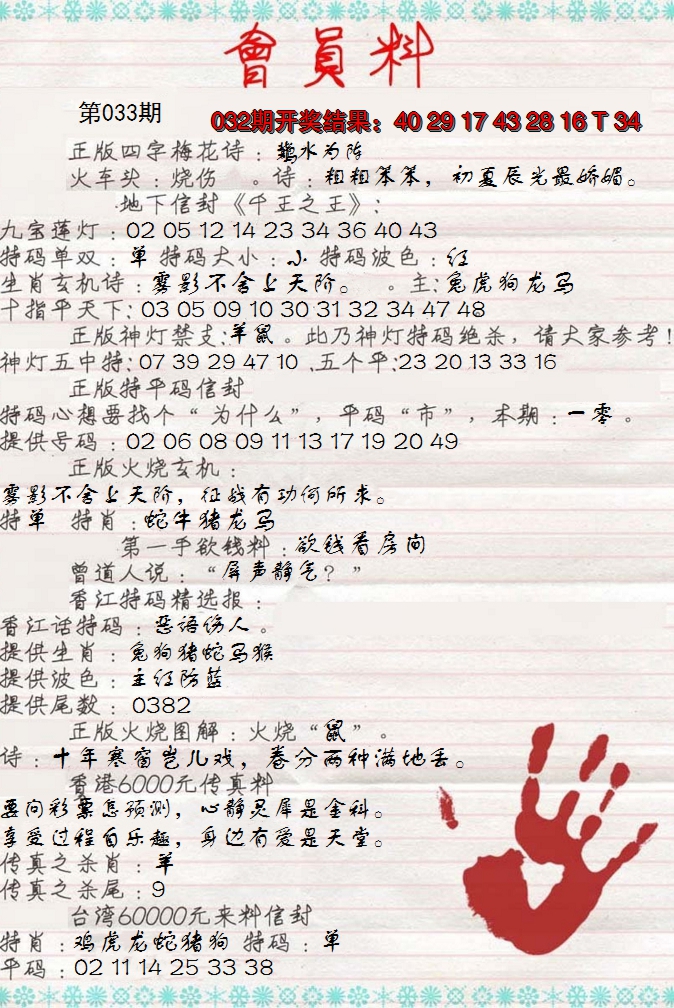 會員料
第033期
032期开奖结果：40 29 17 43 28 16 T 34
正版四字梅花诗：鵝水为阵
火车头：烧伤 。诗：粗粗笨笨，初夏辰光最娇媚。
·地下信封《千王之王》：
九宝莲灯：02 05 12 14 23 34 36 40 43
特码单双：单 特码大小：小 特码波色：红
生肖玄机诗：雾影不舍上天阶。 。主：兔虎狗龙马
十指平天下：03 05 09 10 30 31 32 34 47 48
正版神灯禁支：羊鼠。此乃神灯特码绝杀，请大家参考！
神灯五中特：07 39 29 47 10 .五个平：23 20 13 33 16
正版特平码信封
特码心想要找个“为什么”，平码“市”，本期：一零。
提供号码：02 06 08 09 11 13 17 19 20 49
正版火烧玄机：
雾影不舍上天阶，征战有功何所求。
特单 特肖：蛇牛猪龙马
第一手欲钱料：欲钱看房间
曾道人说：“屏声静气？”
香江特码精选报：
香江话特码：恶语伤人。
提供生肖：兔狗猪蛇马猴
提供波色：主红防蓝
提供尾数：0382
正版火烧图解：火烧“鼠”。
诗：十年寒窗岂儿戏，卷分两种满地丢。
香港6000元传真料
要问彩票怎预测，心静灵犀是金科。
享受过程自乐趣，身边有爱是天堂。
传真之杀肖：羊
传真之杀尾：9
台湾60000元来料信封
特肖：鸡虎龙蛇猪狗 特码：单
平码：02 11 14 25 33 38